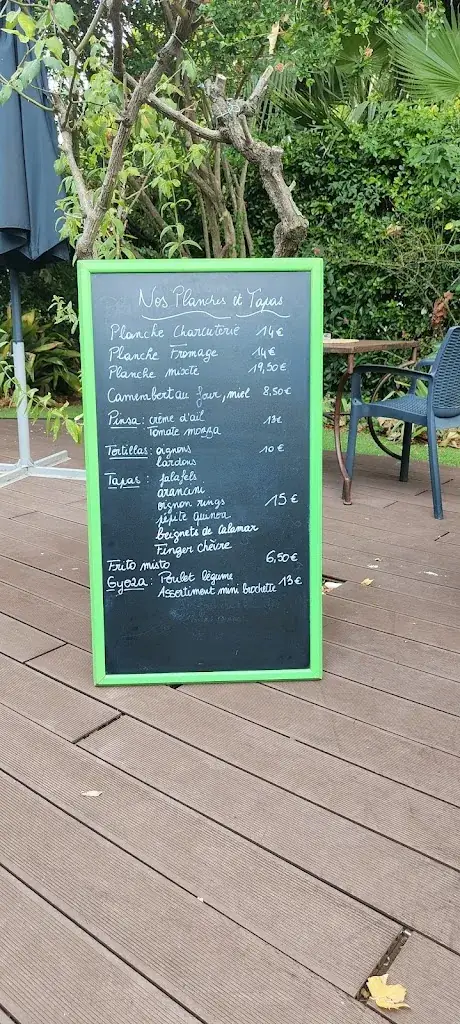 Nos Planches et Tapas
Planche Charcuterie 14€
Planche Fromage 14€
Planche mixte 19,50€
Camembert au four, miel 8,50€
Pinsa: crème d'ail 13€
Tomate mozza
Tortillas: oignons 10€
lardons
Tapas: falafels
arancini
oignon rings 15€
pépite quinoa
beignets de calamar
Finger chèvre
Frito misto 6,50€
Gyoza: Poulet légume
Assortiment mini brochette 13€